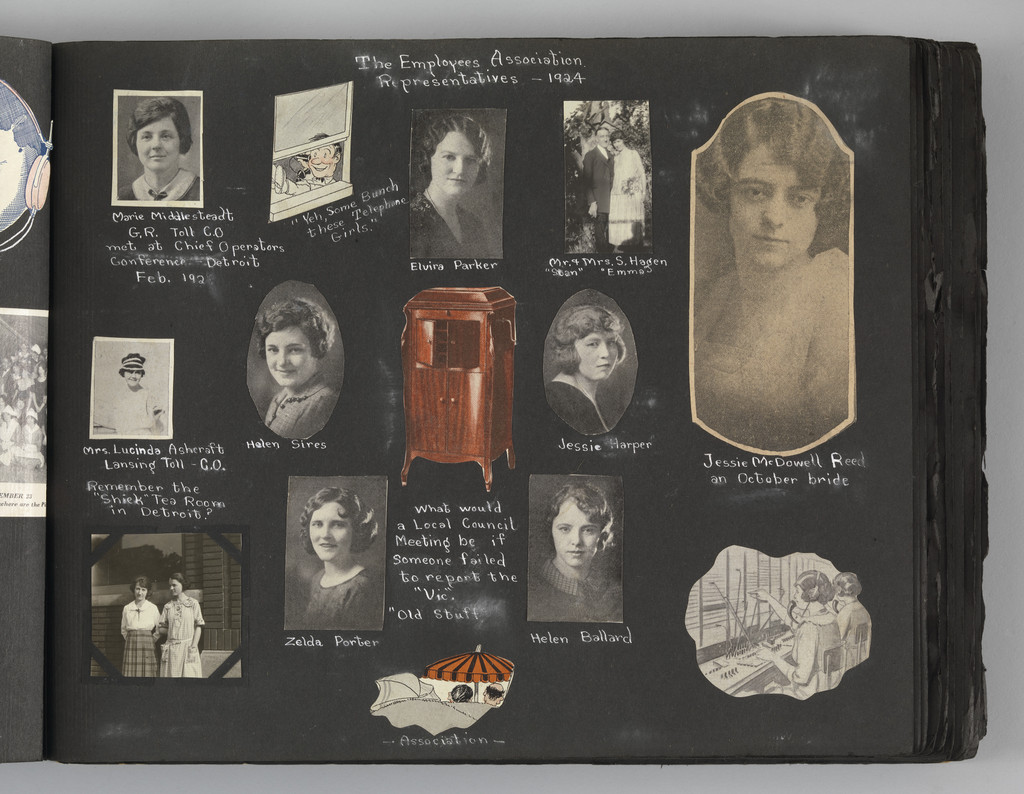 The Employees Association
Representatives - 1924
Marie Middlesteadt
G.R. Toll CO
met at Chief Operators
Conference - Detroit
Feb. 192
"Yeh, Some Bunch
these Telephone
Girls."
Elvira Parker
Mr. & Mrs. S. Hagen
"Stan" "Emma"
Mrs. Lucinda Ashcraft
Lansing Toll - C.O.
Remember the
"Shiek" Tea Room
in Detroit?
Helen Sires
Jessie Harper
Jessie McDowell Reed
an October bride
What would
a Local Council
Meeting be if
someone failed
to report the
"Vic".
"Old Stuff"
Zelda Porter
Helen Ballard
- Association -
EMBER 23
where are the